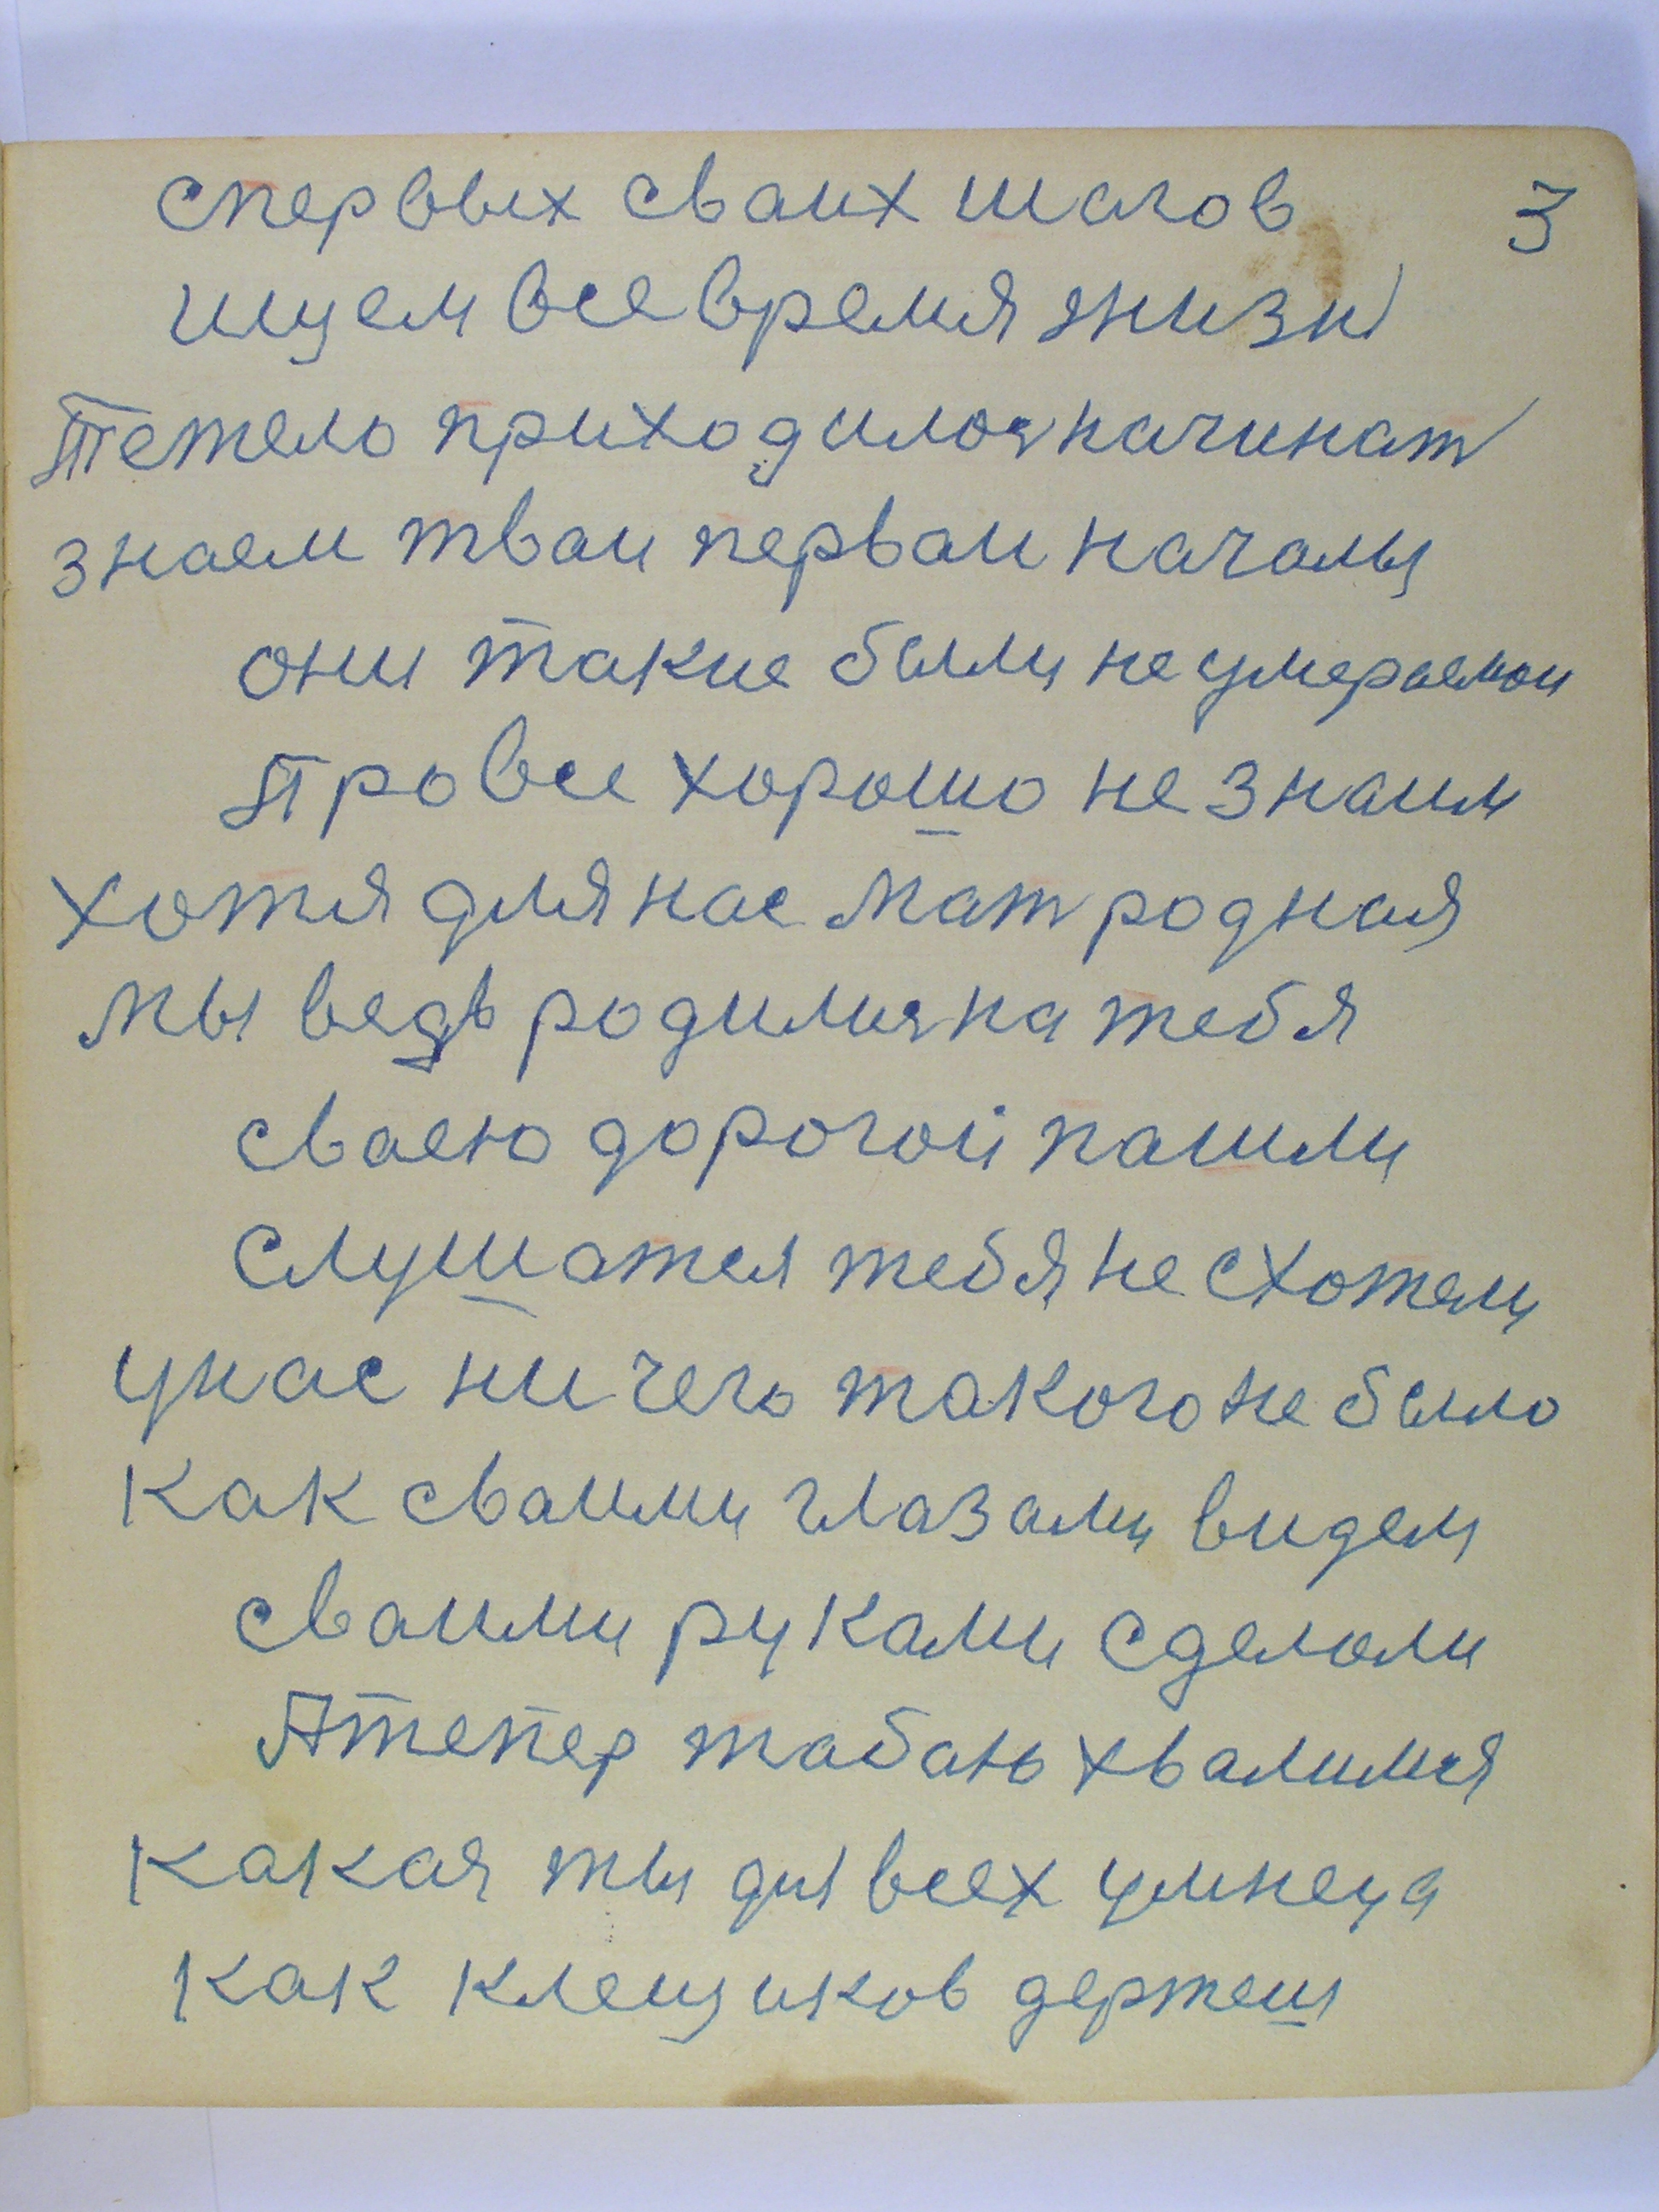 спервых сваих шагов 3
ищем все время жизн
Тежело приходилося начинат
знаем тваи перваи началы
они такие были неумераемаи
Про все хорошо не знаим
хотя для нас мат родная
мы ведь родилися на тебя
сваею дорогой пашли
слушатся тебя не схотели
унас ни чего такого не было
Как сваими глазами видем
сваими руками сделали
Атепер табаю хвалимся
Какая ты для всех умнеца
Как клещиков держеш